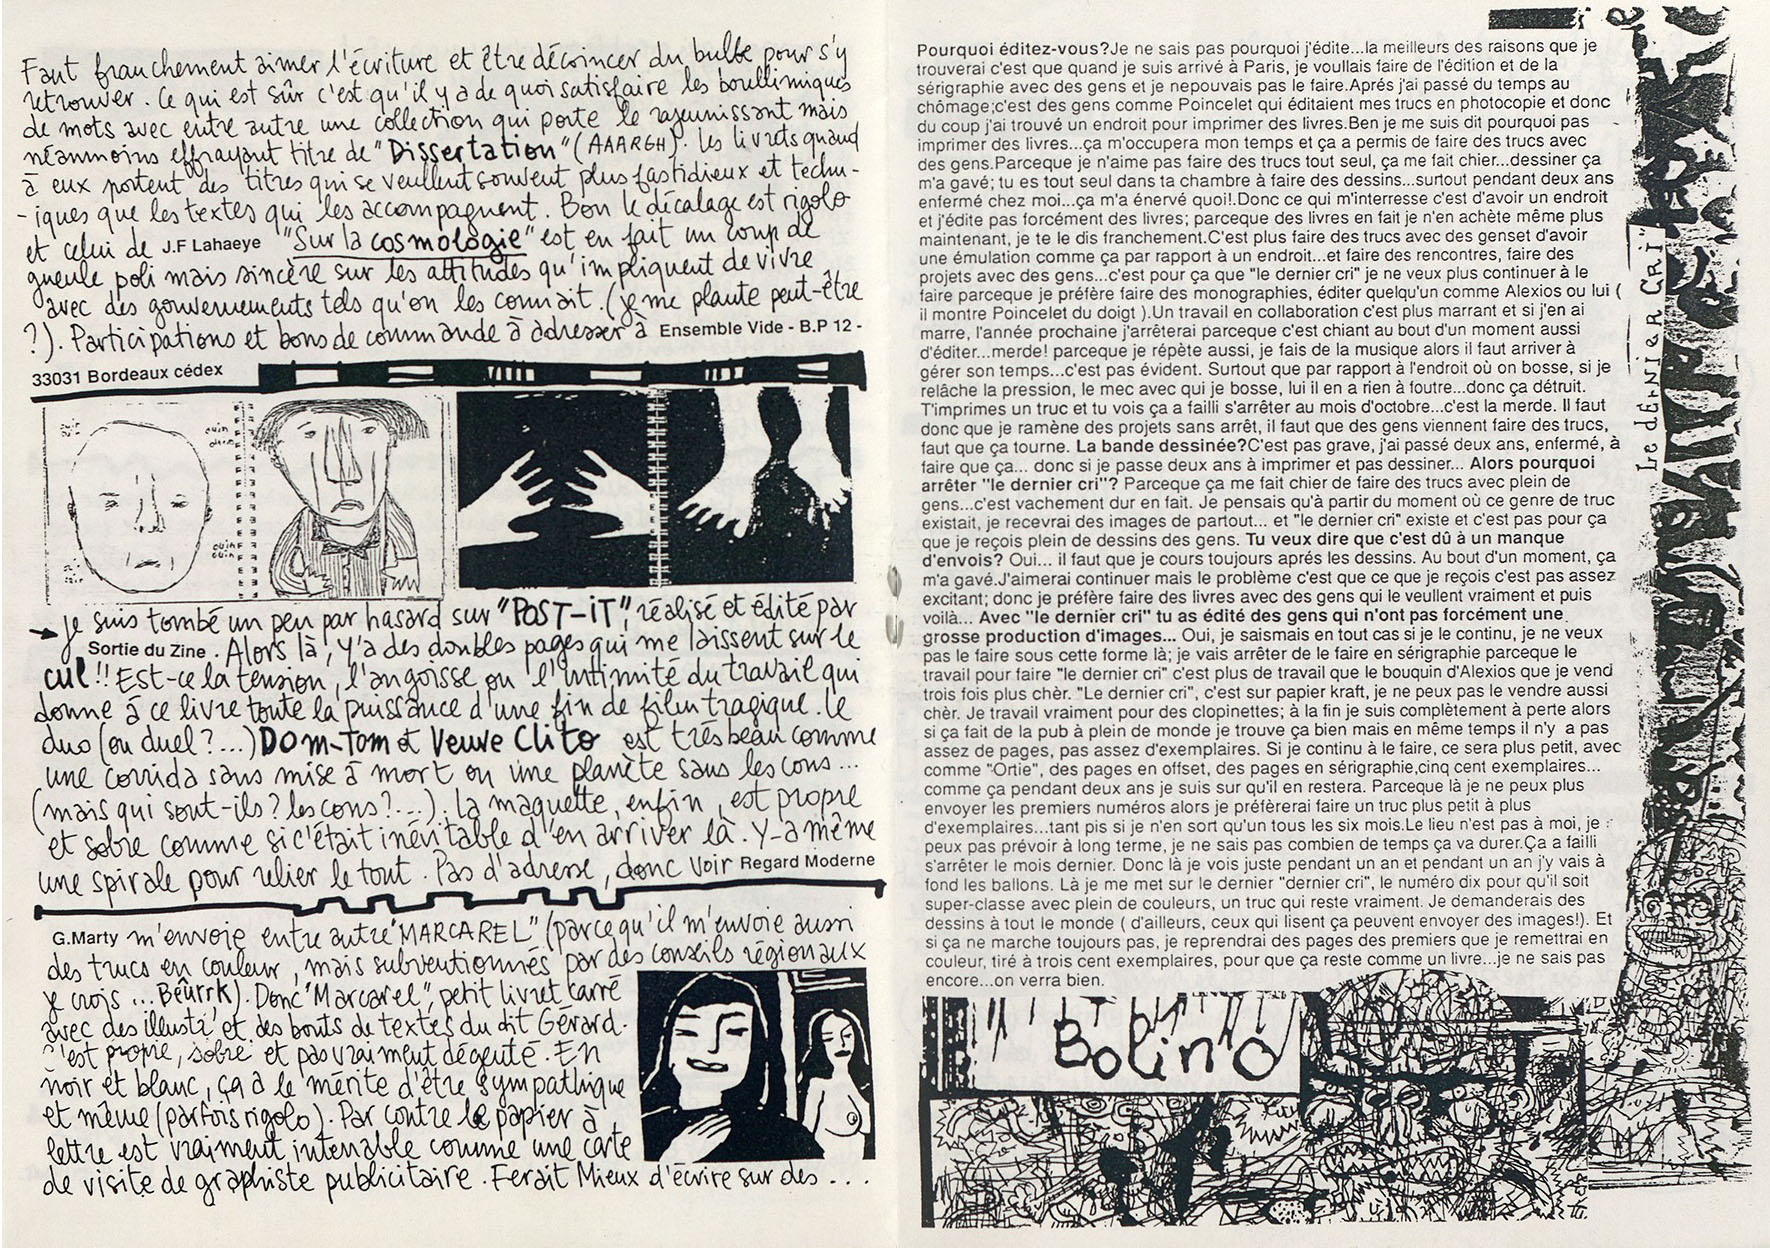 Faut franchement aimer l'écriture et être décoincer du bulbe pour s'y
retrouver. Ce qui est sûr c'est qu'il y a de quoi satisfaire les boullimiques
de mots avec entre autre une collection qui porte le rajeunissant mais
néanmoins effrayant titre de "Dissertation" (AAARGH). Les livrets quand
à eux portent des titres qui se veullent souvent plus fastidieux et techn-
-iques que les textes qui les accompagnent. Bon le décalage est rigolo
et celui de J.F Lahaeye "Sur la cosmologie" est en fait un coup de
gueule poli mais sincère sur les attitudes qu'impliquent de vivre
avec des gouvernements tels qu'on les connait. (je me plante peut-être
?). Participations et bons de commande à adresser à Ensemble Vide - B.P 12 -
33031 Bordeaux cédex
ouin
ouin
ouin
je suis tombé un peu par hasard sur "POST-iT", réalisé et édité par
Sortie du Zine. Alors là, y'a des doubles pages qui me laissent sur le
cul!! Est-ce la tension, l'angoisse ou l'intimité du travail qui
donne à ce livre toute la puissance d'une fin de film tragique. Le
duo (ou duel?...) DOM-TOM et Veuve Clito est très beau comme
une corrida sans mise à mort ou une planète sans les cons...
(mais qui sont-ils? les cons?...). La maquette, enfin, est propre
et sobre comme si c'était inévitable d'en arriver là. Y-a même
une spirale pour relier le tout. Pas d'adresse, donc voir Regard Moderne
G.Marty m'envoie entre autre "MARCAREL" (parce qu'il m'envoie aussi
des trucs en couleur, mais subventionnés par des conseils régionaux
je crois ... Beûrrk). Donc "Marcarel", petit livret carré
avec des illusti' et des bouts de textes du dit Gérard.
C'est propre, sobre et pas vraiment dégeuté. En
noir et blanc, ça a le mérite d'être sympathique
et même (parfois rigolo). Par contre le papier à
lettre est vraiment intenable comme une carte
de visite de graphiste publicitaire. Ferait Mieux d'écrire sur des ...
Pourquoi éditez-vous?Je ne sais pas pourquoi j'édite...la meilleurs des raisons que je
trouverai c'est que quand je suis arrivé à Paris, je voullais faire de l'édition et de la
sérigraphie avec des gens et je nepouvais pas le faire.Aprés j'ai passé du temps au
chômage;c'est des gens comme Poincelet qui éditaient mes trucs en photocopie et donc
du coup j'ai trouvé un endroit pour imprimer des livres.Ben je me suis dit pourquoi pas
imprimer des livres...ça m'occupera mon temps et ça a permis de faire des trucs avec
des gens.Parceque je n'aime pas faire des trucs tout seul, ça me fait chier...dessiner ça
m'a gavé; tu es tout seul dans ta chambre à faire des dessins...surtout pendant deux ans
enfermé chez moi...ça m'a énervé quoi!.Donc ce qui m'interresse c'est d'avoir un endroit
et j'édite pas forcément des livres; parceque des livres en fait je n'en achète même plus
maintenant, je te le dis franchement.C'est plus faire des trucs avec des genset d'avoir
une émulation comme ça par rapport à un endroit...et faire des rencontres, faire des
projets avec des gens...c'est pour ça que "le dernier cri" je ne veux plus continuer à le
faire parceque je préfère faire des monographies, éditer quelqu'un comme Alexios ou lui (
il montre Poincelet du doigt ).Un travail en collaboration c'est plus marrant et si j'en ai
marre, l'année prochaine j'arrêterai parceque c'est chiant au bout d'un moment aussi
d'éditer...merde! parceque je répète aussi, je fais de la musique alors il faut arriver à
gérer son temps...c'est pas évident. Surtout que par rapport à l'endroit où on bosse, si je
relâche la pression, le mec avec qui je bosse, lui il en a rien à foutre...donc ça détruit.
T'imprimes un truc et tu vois ça a failli s'arrêter au mois d'octobre...c'est la merde. Il faut
donc que je ramène des projets sans arrêt, il faut que des gens viennent faire des trucs,
faut que ça tourne. La bande dessinée?C'est pas grave, j'ai passé deux ans, enfermé, à
faire que ça... donc si je passe deux ans à imprimer et pas dessiner... Alors pourquoi
arrêter "le dernier cri"? Parceque ça me fait chier de faire des trucs avec plein de
gens...c'est vachement dur en fait. Je pensais qu'à partir du moment où ce genre de truc
existait, je recevrai des images de partout... et "le dernier cri" existe et c'est pas pour ça
que je reçois plein de dessins des gens. Tu veux dire que c'est dû à un manque
d'envois? Oui... il faut que je cours toujours aprés les dessins. Au bout d'un moment, ça
m'a gavé.J'aimerai continuer mais le problème c'est que ce que je reçois c'est pas assez
excitant; donc je préfère faire des livres avec des gens qui le veullent vraiment et puis
voilà... Avec "le dernier cri" tu as édité des gens qui n'ont pas forcément une
grosse production d'images... Oui, je saismais en tout cas si je le continu, je ne veux
pas le faire sous cette forme là; je vais arrêter de le faire en sérigraphie parceque le
travail pour faire "le dernier cri" c'est plus de travail que le bouquin d'Alexios que je vend
trois fois plus chèr. "Le dernier cri", c'est sur papier kraft, je ne peux pas le vendre aussi
chèr. Je travail vraiment pour des clopinettes; à la fin je suis complètement à perte alors
si ça fait de la pub à plein de monde je trouve ça bien mais en même temps il n'y a pas
assez de pages, pas assez d'exemplaires. Si je continu à le faire, ce sera plus petit, avec
comme "Ortie", des pages en offset, des pages en sérigraphie,cinq cent exemplaires...
comme ça pendant deux ans je suis sur qu'il en restera. Parceque là je ne peux plus
envoyer les premiers numéros alors je préfèrerai faire un truc plus petit à plus
d'exemplaires...tant pis si je n'en sort qu'un tous les six mois.Le lieu n'est pas à moi, je
peux pas prévoir à long terme, je ne sais pas combien de temps ça va durer.Ça a failli
s'arrêter le mois dernier. Donc là je vois juste pendant un an et pendant un an j'y vais à
fond les ballons. Là je me met sur le dernier "dernier cri", le numéro dix pour qu'il soit
super-classe avec plein de couleurs, un truc qui reste vraiment. Je demanderais des
dessins à tout le monde ( d'ailleurs, ceux qui lisent ça peuvent envoyer des images!). Et
si ça ne marche toujours pas, je reprendrai des pages des premiers que je remettrai en
couleur, tiré à trois cent exemplaires, pour que ça reste comme un livre...je ne sais pas
encore...on verra bien.
Le dERNiER CRi"
BolinO